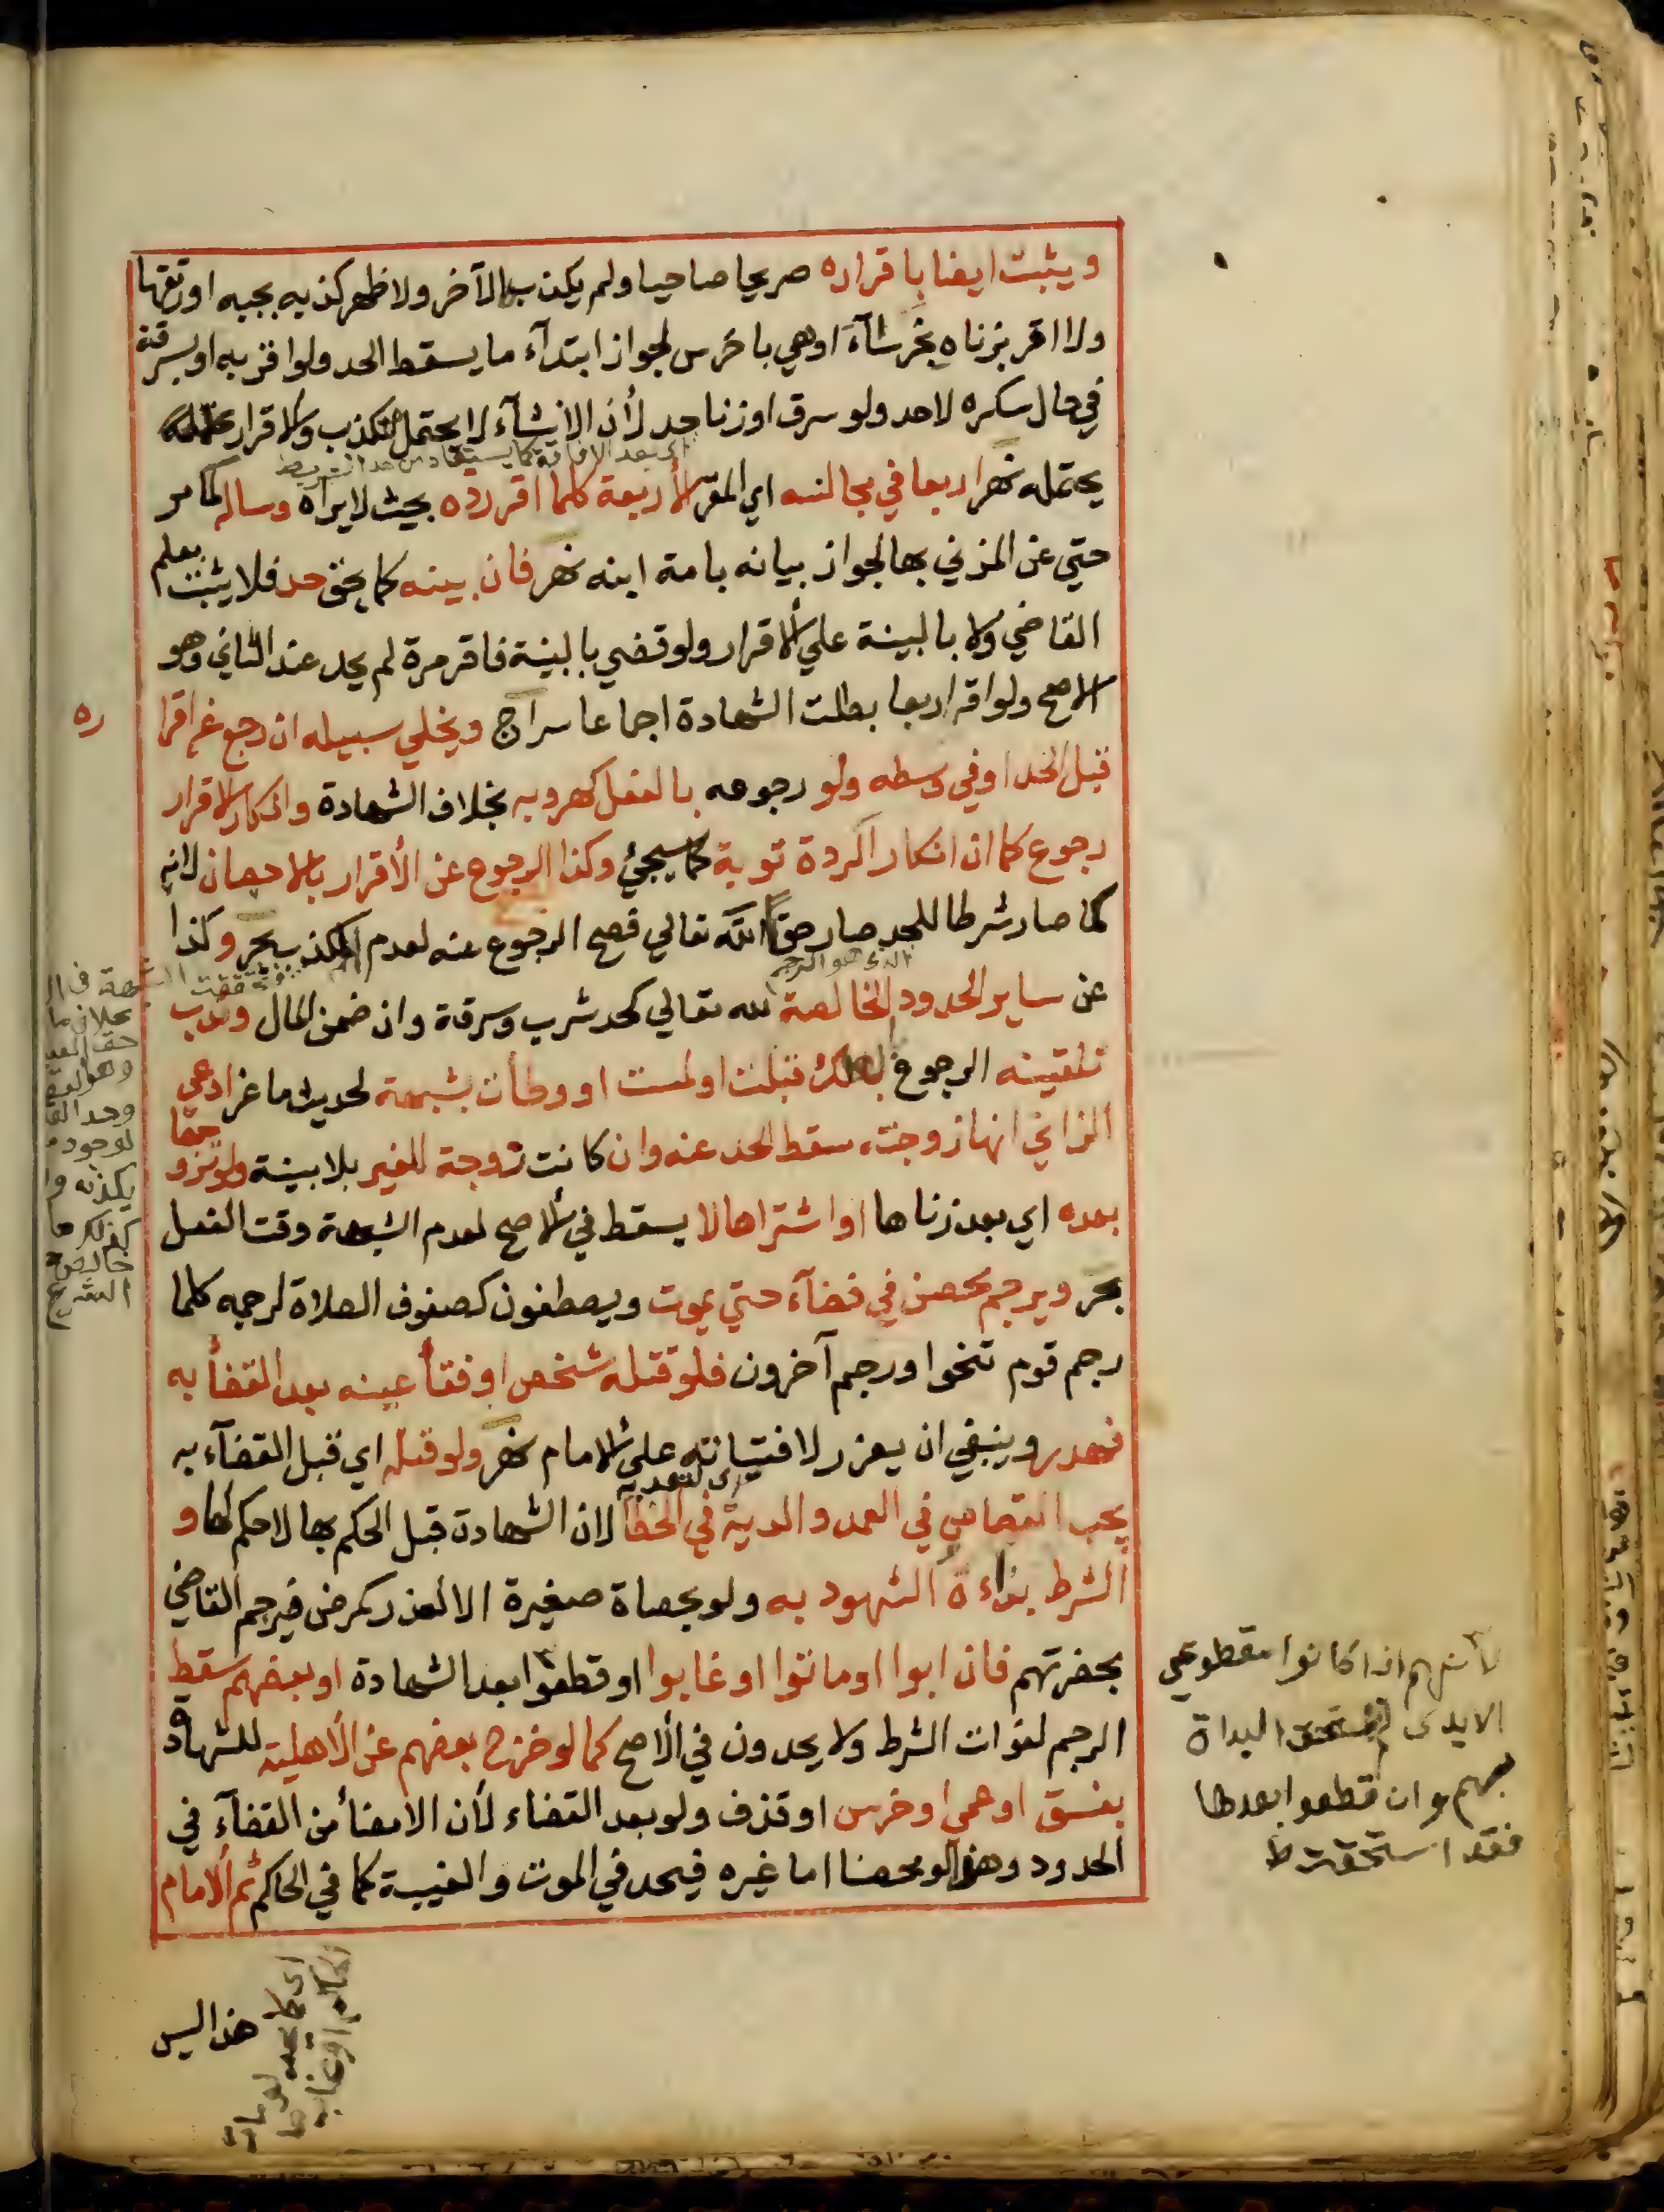 ويثبت ايضا باقراره صريحا صاحيا ولم يكذبه الآخر ولا ظهر كذبه بجبه او رتقها
ولا اقر بزناه بخرسآء او هي باخرس لجواز ابتدآء ما يسقط الحد ولو اقر به او بسرقة
في حال سكره لا حد ولو سرق او زنا حد لأن الانشآء لا يحتمل التكذيب والاقرار
يحتمله نهر اربعا في مجالسه اي المقر الأربعة كلما اقر رده بحيث لا يراه وساله كما مر
حتي عن المزني بها لجواز بيانه بامة ابنه نهر فان بينه كما يحق حد فلا يثبت بعلم
القاضي ولا بالبينة علي الاقرار ولو قضي بالبينة فاقر مرة لم يحد عند الثاني وهو
الاصح ولو اقر اربعا بطلت الشهادة اجماعا سراج ويخلي سبيله ان رجع عن اقرا
ره
قبل الحد او في وسطه ولو رجوعه بالفعل كهروبه بخلاف الشهادة وانكار الاقرار
رجوع كما ان انكار الردة توبة كما سيجئ وكذا الرجوع عن الأقرار بالاحصان لانه
لما صار شرطا للحد صار حقا لله تعالي فصح الرجوع عنه لعدم المكذب بحر وكذا
عن ساير الحدود الخالصة لله تعالي كحد شرب وسرقة وان ضمن المال وندب
تلقينه الرجوع بلعلك قبلت او لمست او وطأت بشبهة لحديث ماعز ادعي
الزاني انها زوجته سقط الحد عنه وان كانت زوجة للغير بلا بينة ولو تزوجها
بعده اي بعد زناها او اشتراها لا يسقط في الاصح لعدم الشبهة وقت الفعل
بحر ويرجم محصن في فضآء حتي يموت ويصطفون كصفوف الصلاة لرجمه كلما
رجم قوم تنحوا ورجم آخرون فلو قتله شخص او فقأ عينه بعد القضأ به
فهدر وينبغي ان يعزر لافتياته علي الامام نهر ولو قتله اي قبل القضآء به
يجب القصاص في العمد والدية في الخطأ لان الشهادة قبل الحكم بها لا حكم لها و
الشرط بداءة الشهود به ولو بحصاة صغيرة الا لعذر كمرض فيرجم القاضي
بحضرتهم فان ابوا او ماتوا او غابوا او قطعوا بعد الشهادة او بعضهم سقط
الرجم لفوات الشرط ولا يحدون في الأصح كما لو خرج بعضهم عن الأهلية للشهادة
بفسق او عمي او خرس او قذف ولو بعد القضاء لأن الامضأ من القضآء في
الحدود وهذا لو محصنا اما غيره فيحد في الموت والغيبة كما في الحاكم ثم الامام
لانهم اذا كانوا مقطوعي
الايدي لم تستحق البداة
بهم وان قطعوا بعدها
فقد استحقت ط
هذا ليس